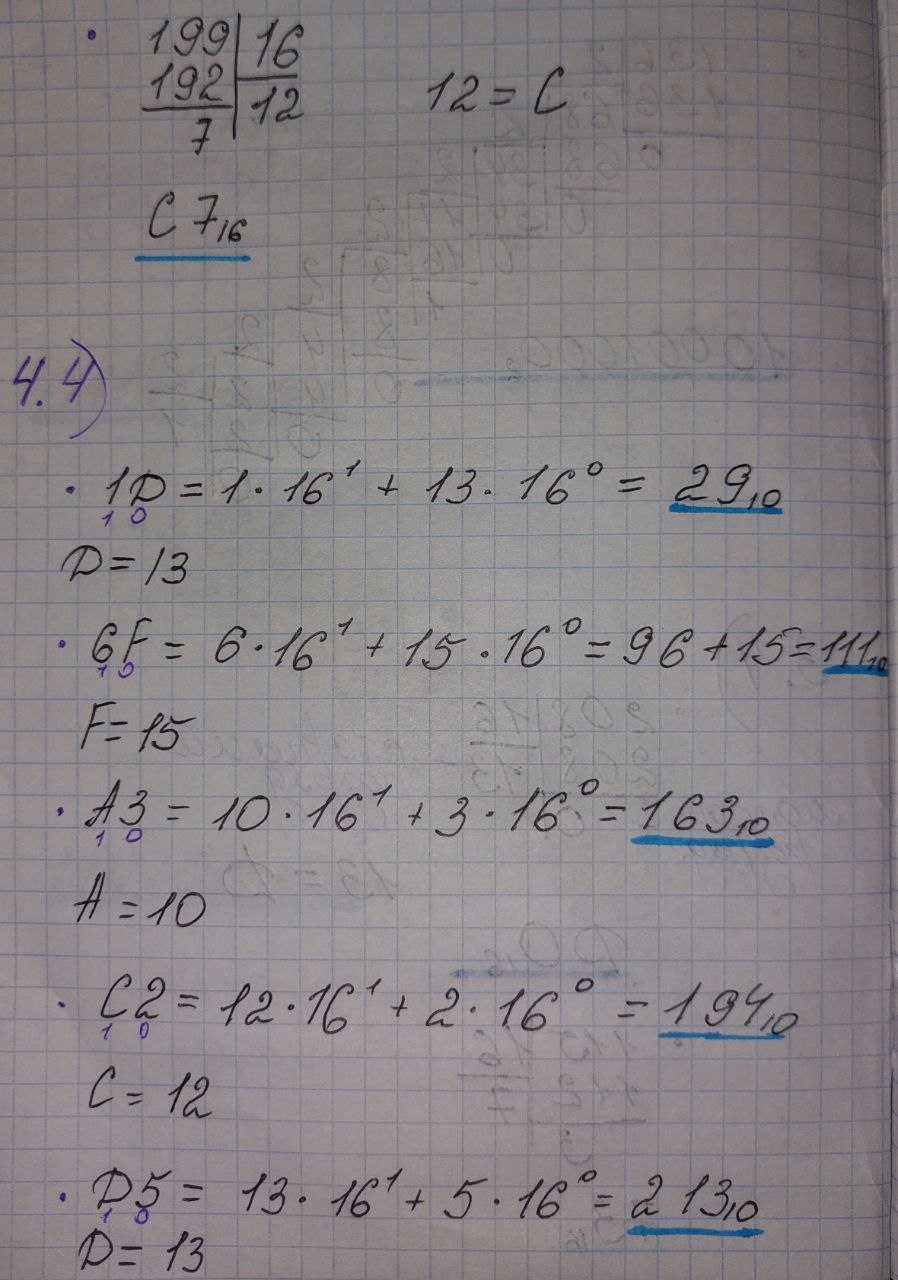 199 | 16
192 | 12
7
12 = C
C7₁₆
4.4)
· 1D = 1 · 16¹ + 13 · 16⁰ = 29₁₀
1 0
D = 13
· 6F = 6 · 16¹ + 15 · 16⁰ = 96 + 15 = 111₁₀
1 0
F = 15
· A3 = 10 · 16¹ + 3 · 16⁰ = 163₁₀
1 0
A = 10
· C2 = 12 · 16¹ + 2 · 16⁰ = 194₁₀
1 0
C = 12
· D5 = 13 · 16¹ + 5 · 16⁰ = 213₁₀
1 0
D = 13